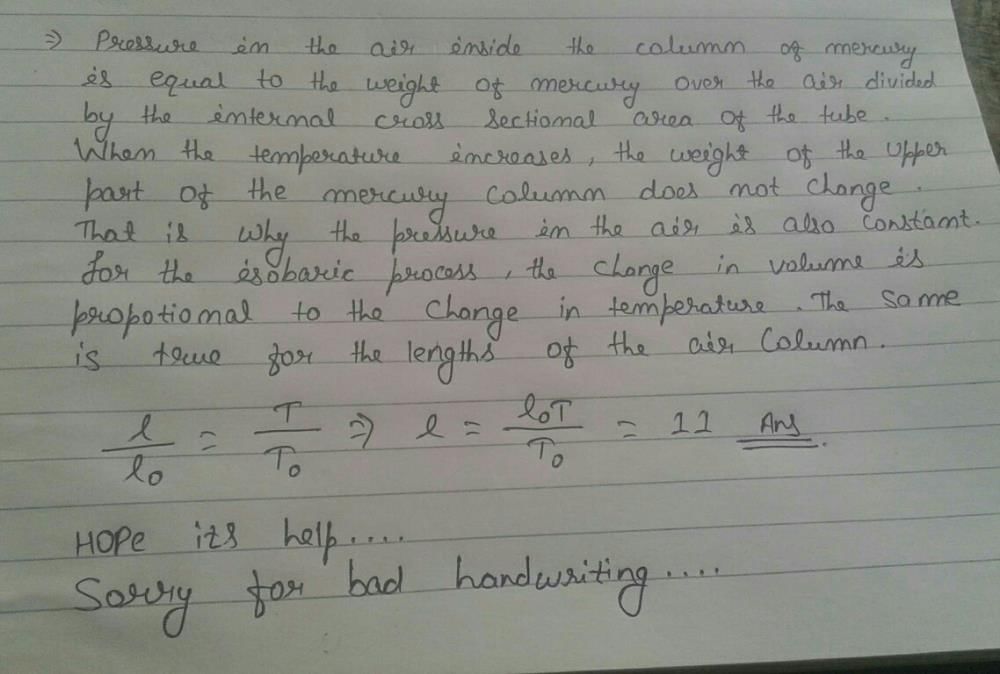 ⇒ Pressure in the air inside the column of mercury
is equal to the weight of mercury over the air divided
by the internal cross sectional area of the tube.
When the temperature increases, the weight of the Upper
part of the mercury column does not change.
That is why the pressure in the air is also constant.
for the isobaric process, the change in volume is
propotional to the change in temperature. The same
is true for the lengths of the air Column.
l/l₀ = T/T₀ ⇒ l = l₀T/T₀ = 11 Ans.
HOPe its help....
Sorry for bad handwriting....